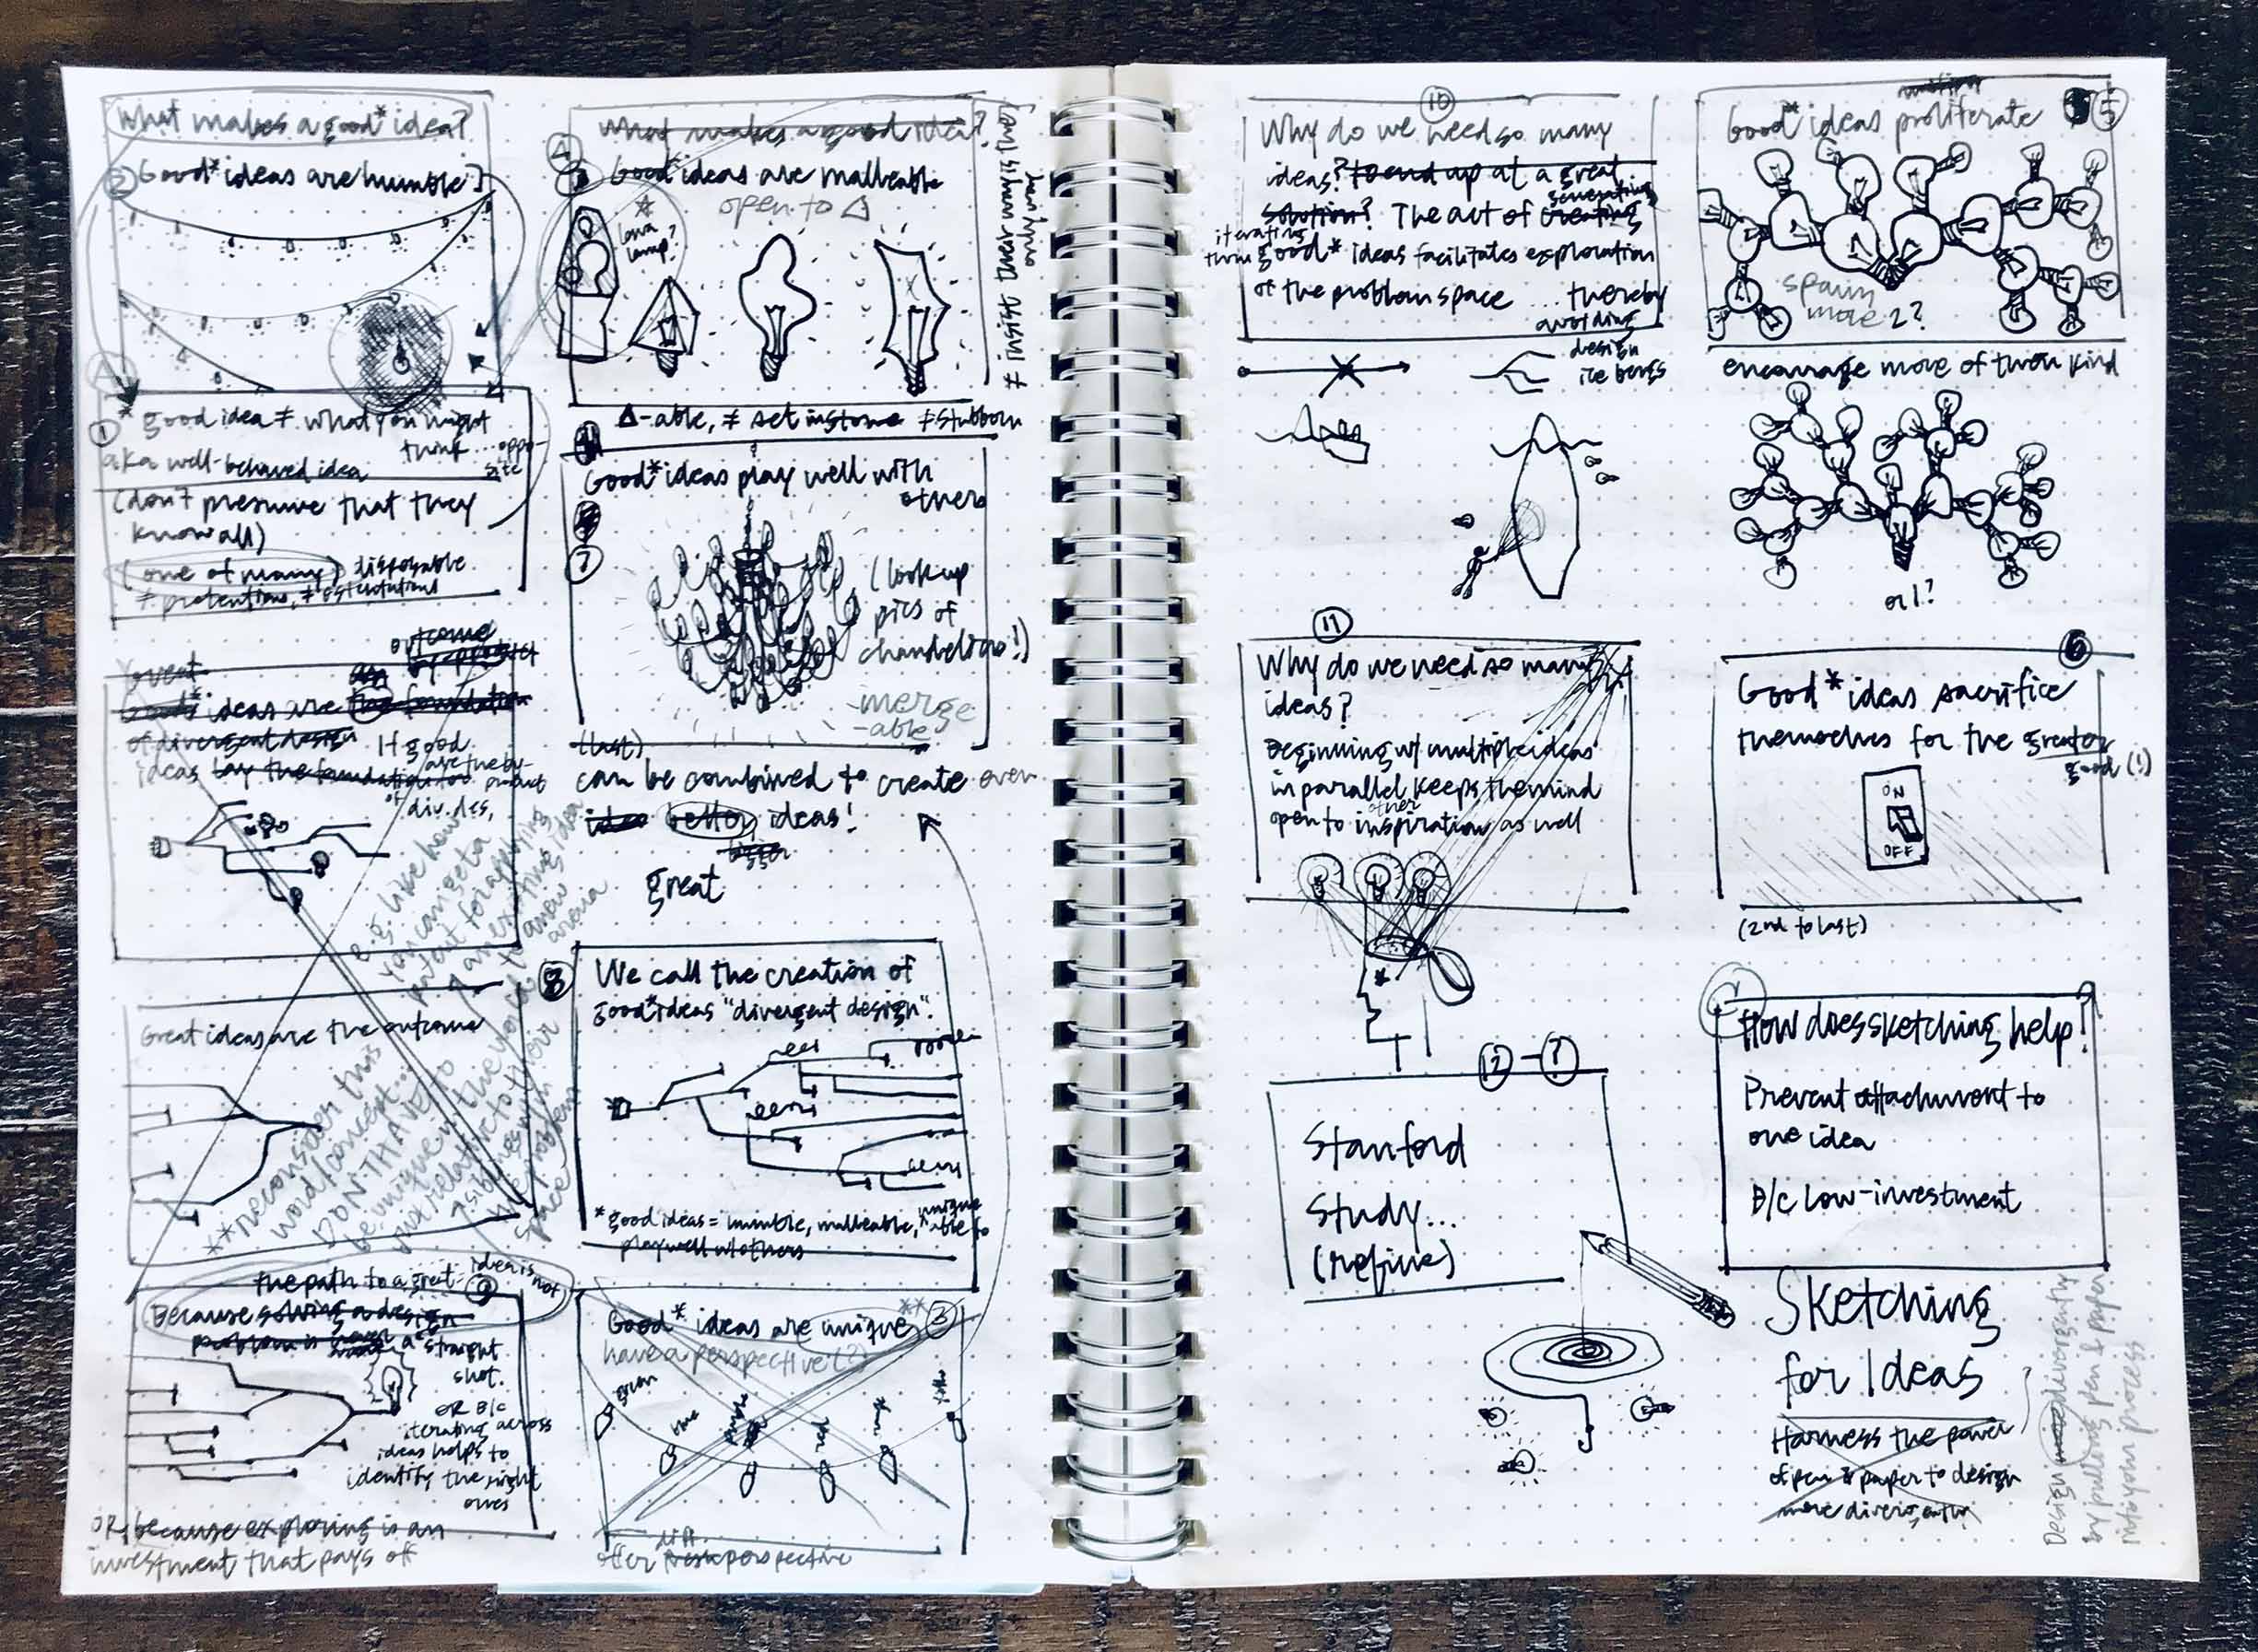 What makes a good* idea?
② Good* ideas are humble
A
① * good idea ≠ what you might
think ... oppo-
site
aka well-behaved idea
(don't presume that they
know all)
(one of many) disposable
≠ pretentious, ≠ ostentatious
great
outcome
by-product
an
Good* ideas are the foundation
of divergent design If good
ideas lay the foundation for
are the by-
product
of
div. des,
e.g. like how
you can get a
patent for applying
an existing idea
to a new
arena
Great ideas are the outcome
**reconsider this
word/concept...
DON'T HAVE TO
be unique in the
just relative to their
space
the path to a great idea is not
⑨
Because solving a design
problem is never a straight
shot.
OR B/c
iterating across
ideas helps to
identify the right
ones
OR because exploring is an
investment that pays off
A
What makes a good idea?
Good* ideas are malleable
open to Δ
* lava
lamp?
≠ insist their way is the
only way
Δ-able, ≠ set in stone ≠ stubborn
Good* ideas play well with
others
⑦
(look up
pics of
chandeliers!)
merge
-able
(last)
can be combined to create even
idea better ideas!
bigger
great
⑧ We call the creation of
good* ideas "divergent design".
*good ideas = humble, malleable, unique able to
play well w/ others
Good* ideas are unique ** ③
have a perspective (?)
green
blue
purple
red
offer diff. perspective
⑩
Why do we need so many
ideas? to end up at a great
solution? The act of creating
generating
iterating
thru good* ideas facilitates exploration
of the problem space ... thereby
avoiding
design
ice bergs
⑪
Why do we need so many
ideas?
Beginning w/ multiple ideas
in parallel keeps the mind
open to other inspiration as well
⑫ – ?
Stanford
Study...
(refine)
Good* ideas proliferate ⑤
spawn
more 2?
encourage more of their kind
or 1?
⑥
Good* ideas sacrifice
themselves for the greater
good (!)
ON
OFF
(2nd to last)
C
How does sketching help?
Prevent attachment to
one idea
B/c low-investment
Sketching
for Ideas
Harness the power
of pen & paper to design
more divergently
Design more divergently
by pulling pen & paper
into your process